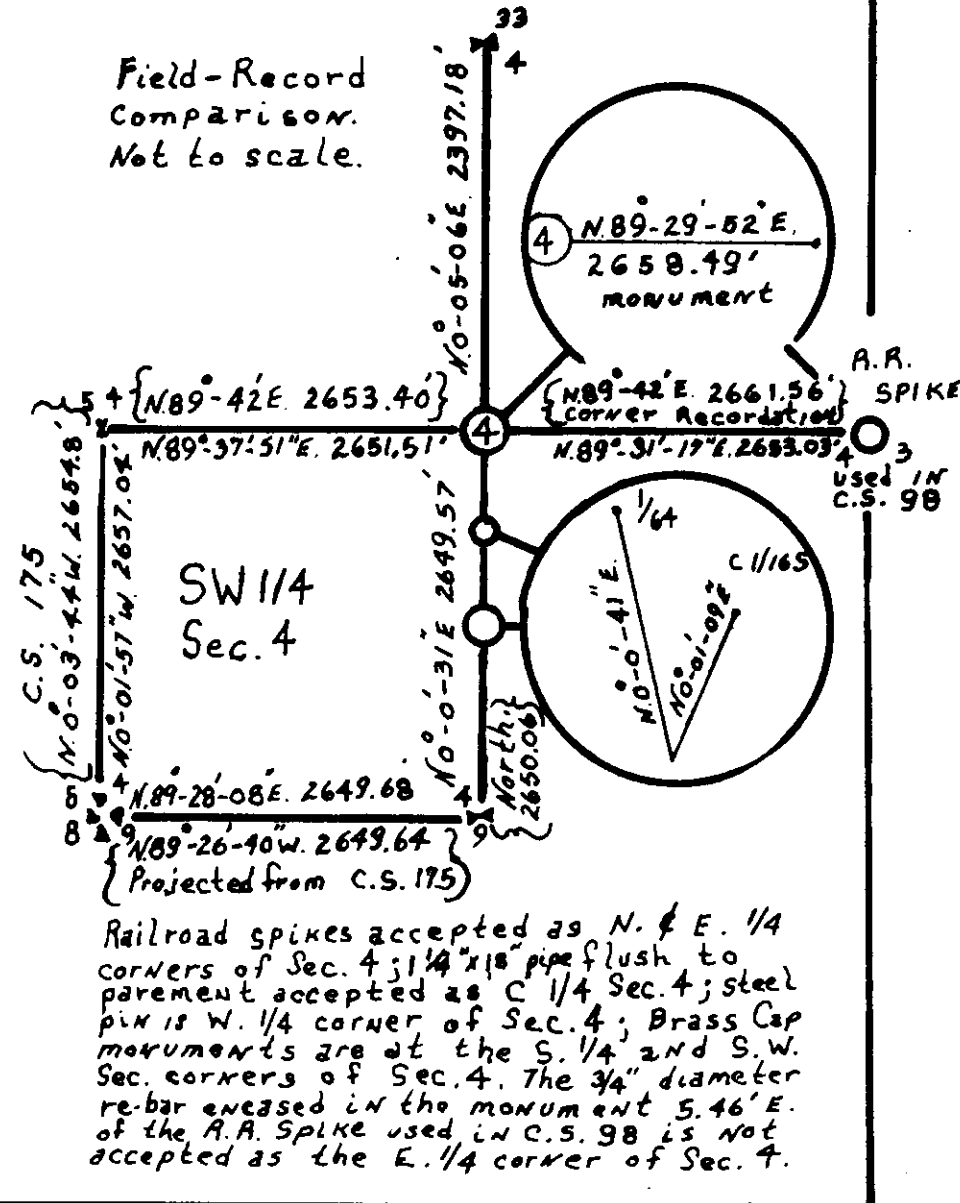 33
4
Field-Record
Comparison.
Not to scale.
N.0°-05'-06"E. 2397.18'
4 N.89°-29'-52"E.
2658.49'
monument
R.R.
SPIKE
5 4 {N.89°-42'E. 2653.40'}
{N.89°-42'E. 2661.56'}
{Corner Recordation}
4
N.89°-37'-51"E. 2651.51'
N.89°-31'-17"E. 2653.03'
4 3
used IN
C.S. 98
C.S. 175
{N.0°-03'-44"W. 2654.8'}
N.0°-01'-57"W. 2657.04'
SW 1/4
Sec. 4
N.0°-0'-31"E 2649.57'
{North. 2650.06}
1/64
C 1/16S
N.0°-0'-41"E.
N.0°-01'-09"E
5 4
8 9
N.89°-28'-08"E. 2649.68
4
9
N.89°-26'-40"W. 2649.64
{Projected from C.S. 175}
Railroad spikes accepted as N. & E. 1/4
corners of Sec. 4; 1 1/4" x 18" pipe flush to
pavement accepted as C 1/4 Sec. 4; steel
pin is W. 1/4 corner of Sec. 4; Brass Cap
monuments are at the S. 1/4 and S.W.
Sec. corners of Sec. 4. The 3/4" diameter
re-bar encased in the monument 5.46' E.
of the R.R. Spike used in C.S. 98 is not
accepted as the E. 1/4 corner of Sec. 4.